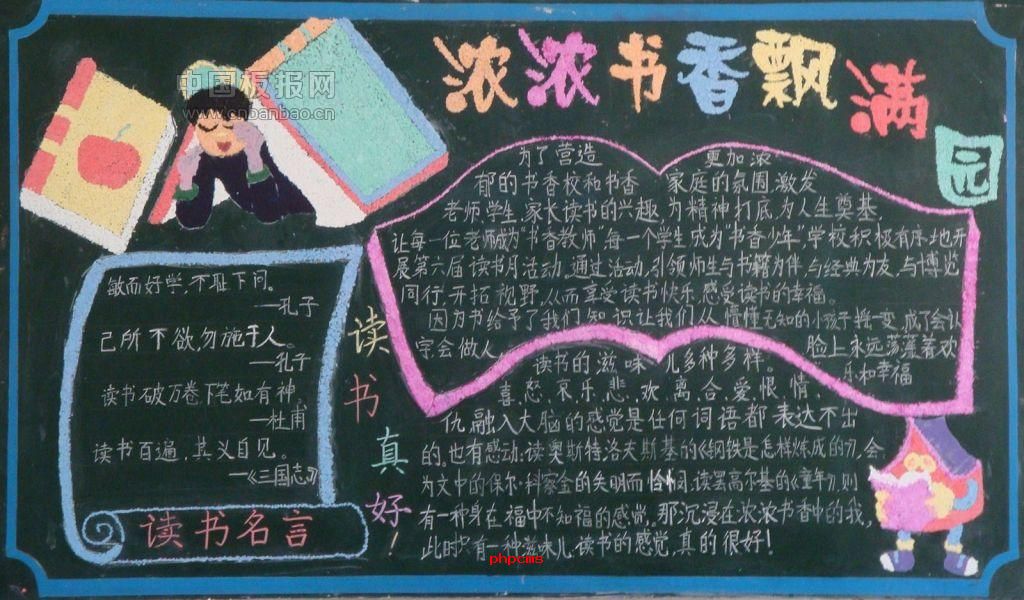 浓浓书香飘满园
中国板报网
www.cnbanbao.cn
为了营造 更加浓
郁的书香校和书香 家庭的氛围,激发
老师,学生,家长读书的兴趣,为精神打底,为人生奠基,
让每一位老师成为“书香教师”每一个学生成为“书香少年”学校积极有序地开
展第六届读书月活动,通过活动,引领师生与书籍为伴,与经典为友,与博览
同行,开拓视野,从而享受读书快乐,感受读书的幸福。
因为书给予了我们知识让我们从懵懂无知的小孩子转变成了会认
字会做人, 脸上永远荡漾着欢
乐和幸福
读书的滋味儿多种多样。
喜、怒、哀、乐、悲、欢、离、合、爱、恨、情、
仇,融入大脑的感觉是任何词语都表达不出
的。也有感动:读奥斯特洛夫斯基的《钢铁是怎样炼成的》,会
为文中的保尔·柯察金的失明而 读罢高尔基的《童年》,则
有一种身在福中不知福的感觉。那沉浸在浓浓书香中的我,
此时只有一种滋味儿,读书的感觉,真的很好!
敏而好学,不耻下问。
—孔子
己所不欲,勿施于人。
—孔子
读书破万卷下笔如有神。
—杜甫
读书百遍,其义自见。
—《三国志》
读书名言
读书真好!
phpcms